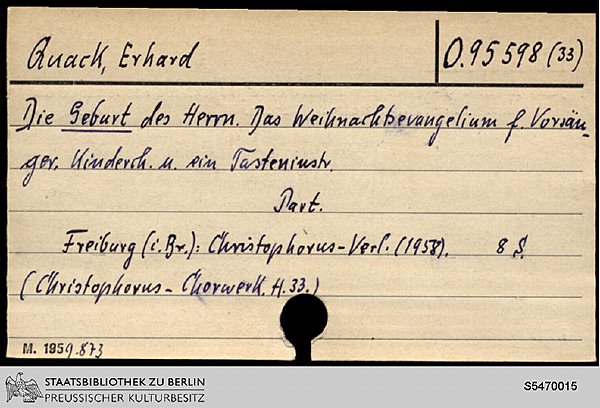 Quack, Erhard
O.95598 (33)
Die Geburt des Herrn. Das Weihnachtsevangelium f. Vorsän-
ger, Kinderch. u. ein Tasteninstr.
Part.
Freiburg (i. Br.): Christophorus-Verl. (1958). 8 S.
(Christophorus-Chorwerk. H. 33.)
M. 1959.873
STAATSBIBLIOTHEK ZU BERLIN
PREUSSISCHER KULTURBESITZ
S5470015